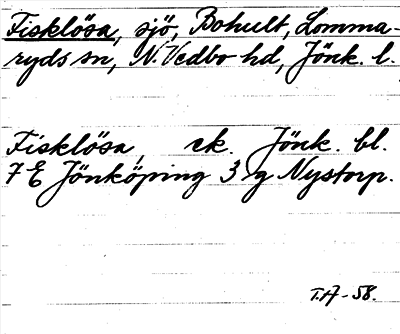 Fisklösa, sjö, Bohult, Lomma-
ryds sn, N. Vedbo hd, Jönk. l.
Fisklösa, ek. Jönk. bl.
7 E Jönköping 3 g Nystorp.
T.H-58.